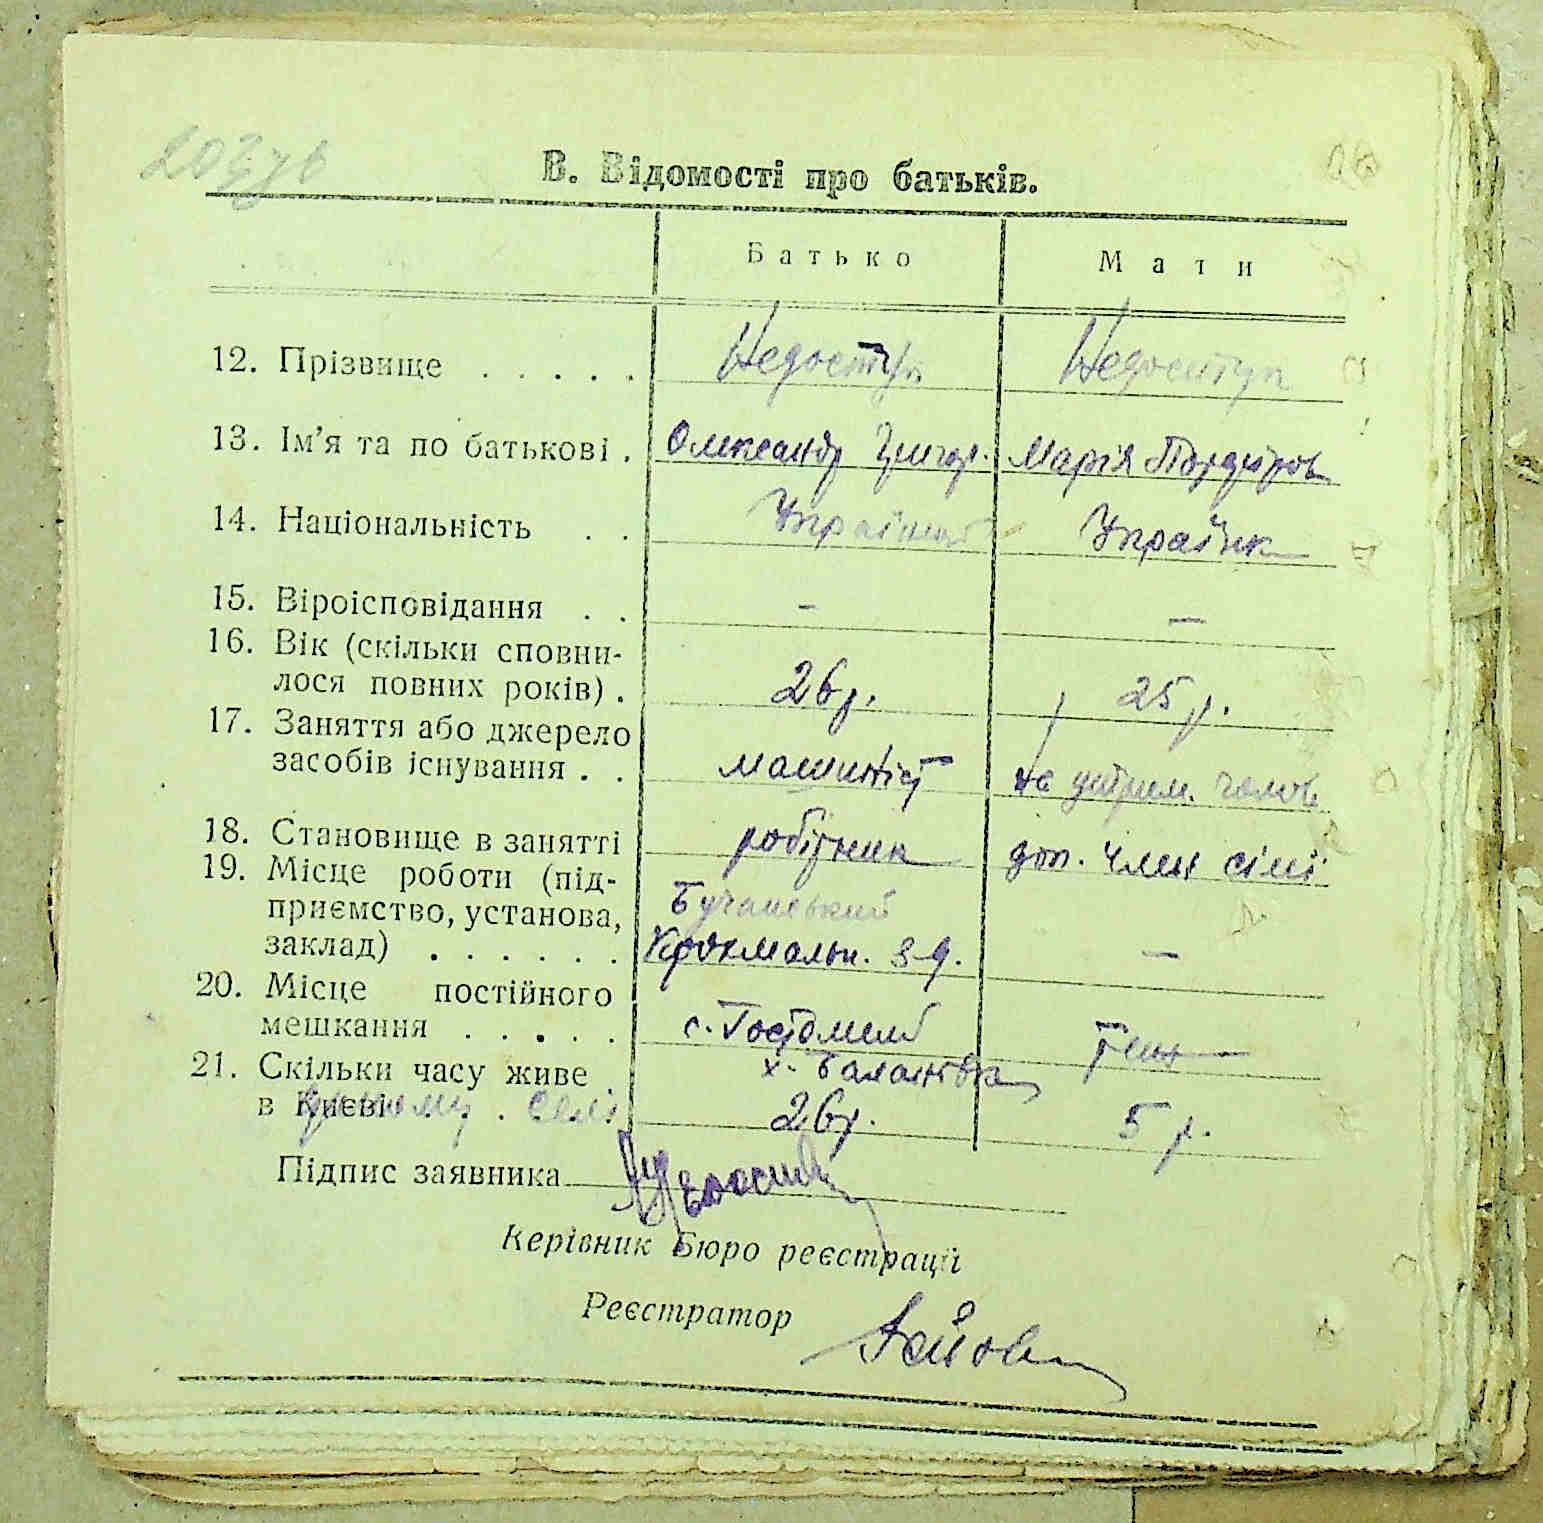 В. Відомості про батьків.
Батько Мати
12. Прізвище . . . . . Недоступ Недоступ
13. Ім'я та по батькові . Олександр Григор. Марія
14. Національність . . Українець Українка
15. Віроісповідання . . - -
16. Вік (скільки сповни-
лося повних років) . 26 р. 25 р.
17. Заняття або джерело
засобів існування . . машиніст на утрим. чолов
18. Становище в занятті робітник доп. член сімї
19. Місце роботи (під-
приємство, установа, Бучанський
заклад) . . . . . . Крохмальн. з-д. -
20. Місце постійного
мешкання . . . . . с. Гостомель теж
21. Скільки часу живе . х. Баланівка
в Києві даному селі 26 р. 5 р.
Підпис заявника
Керівник Бюро реєстрації
Реєстратор